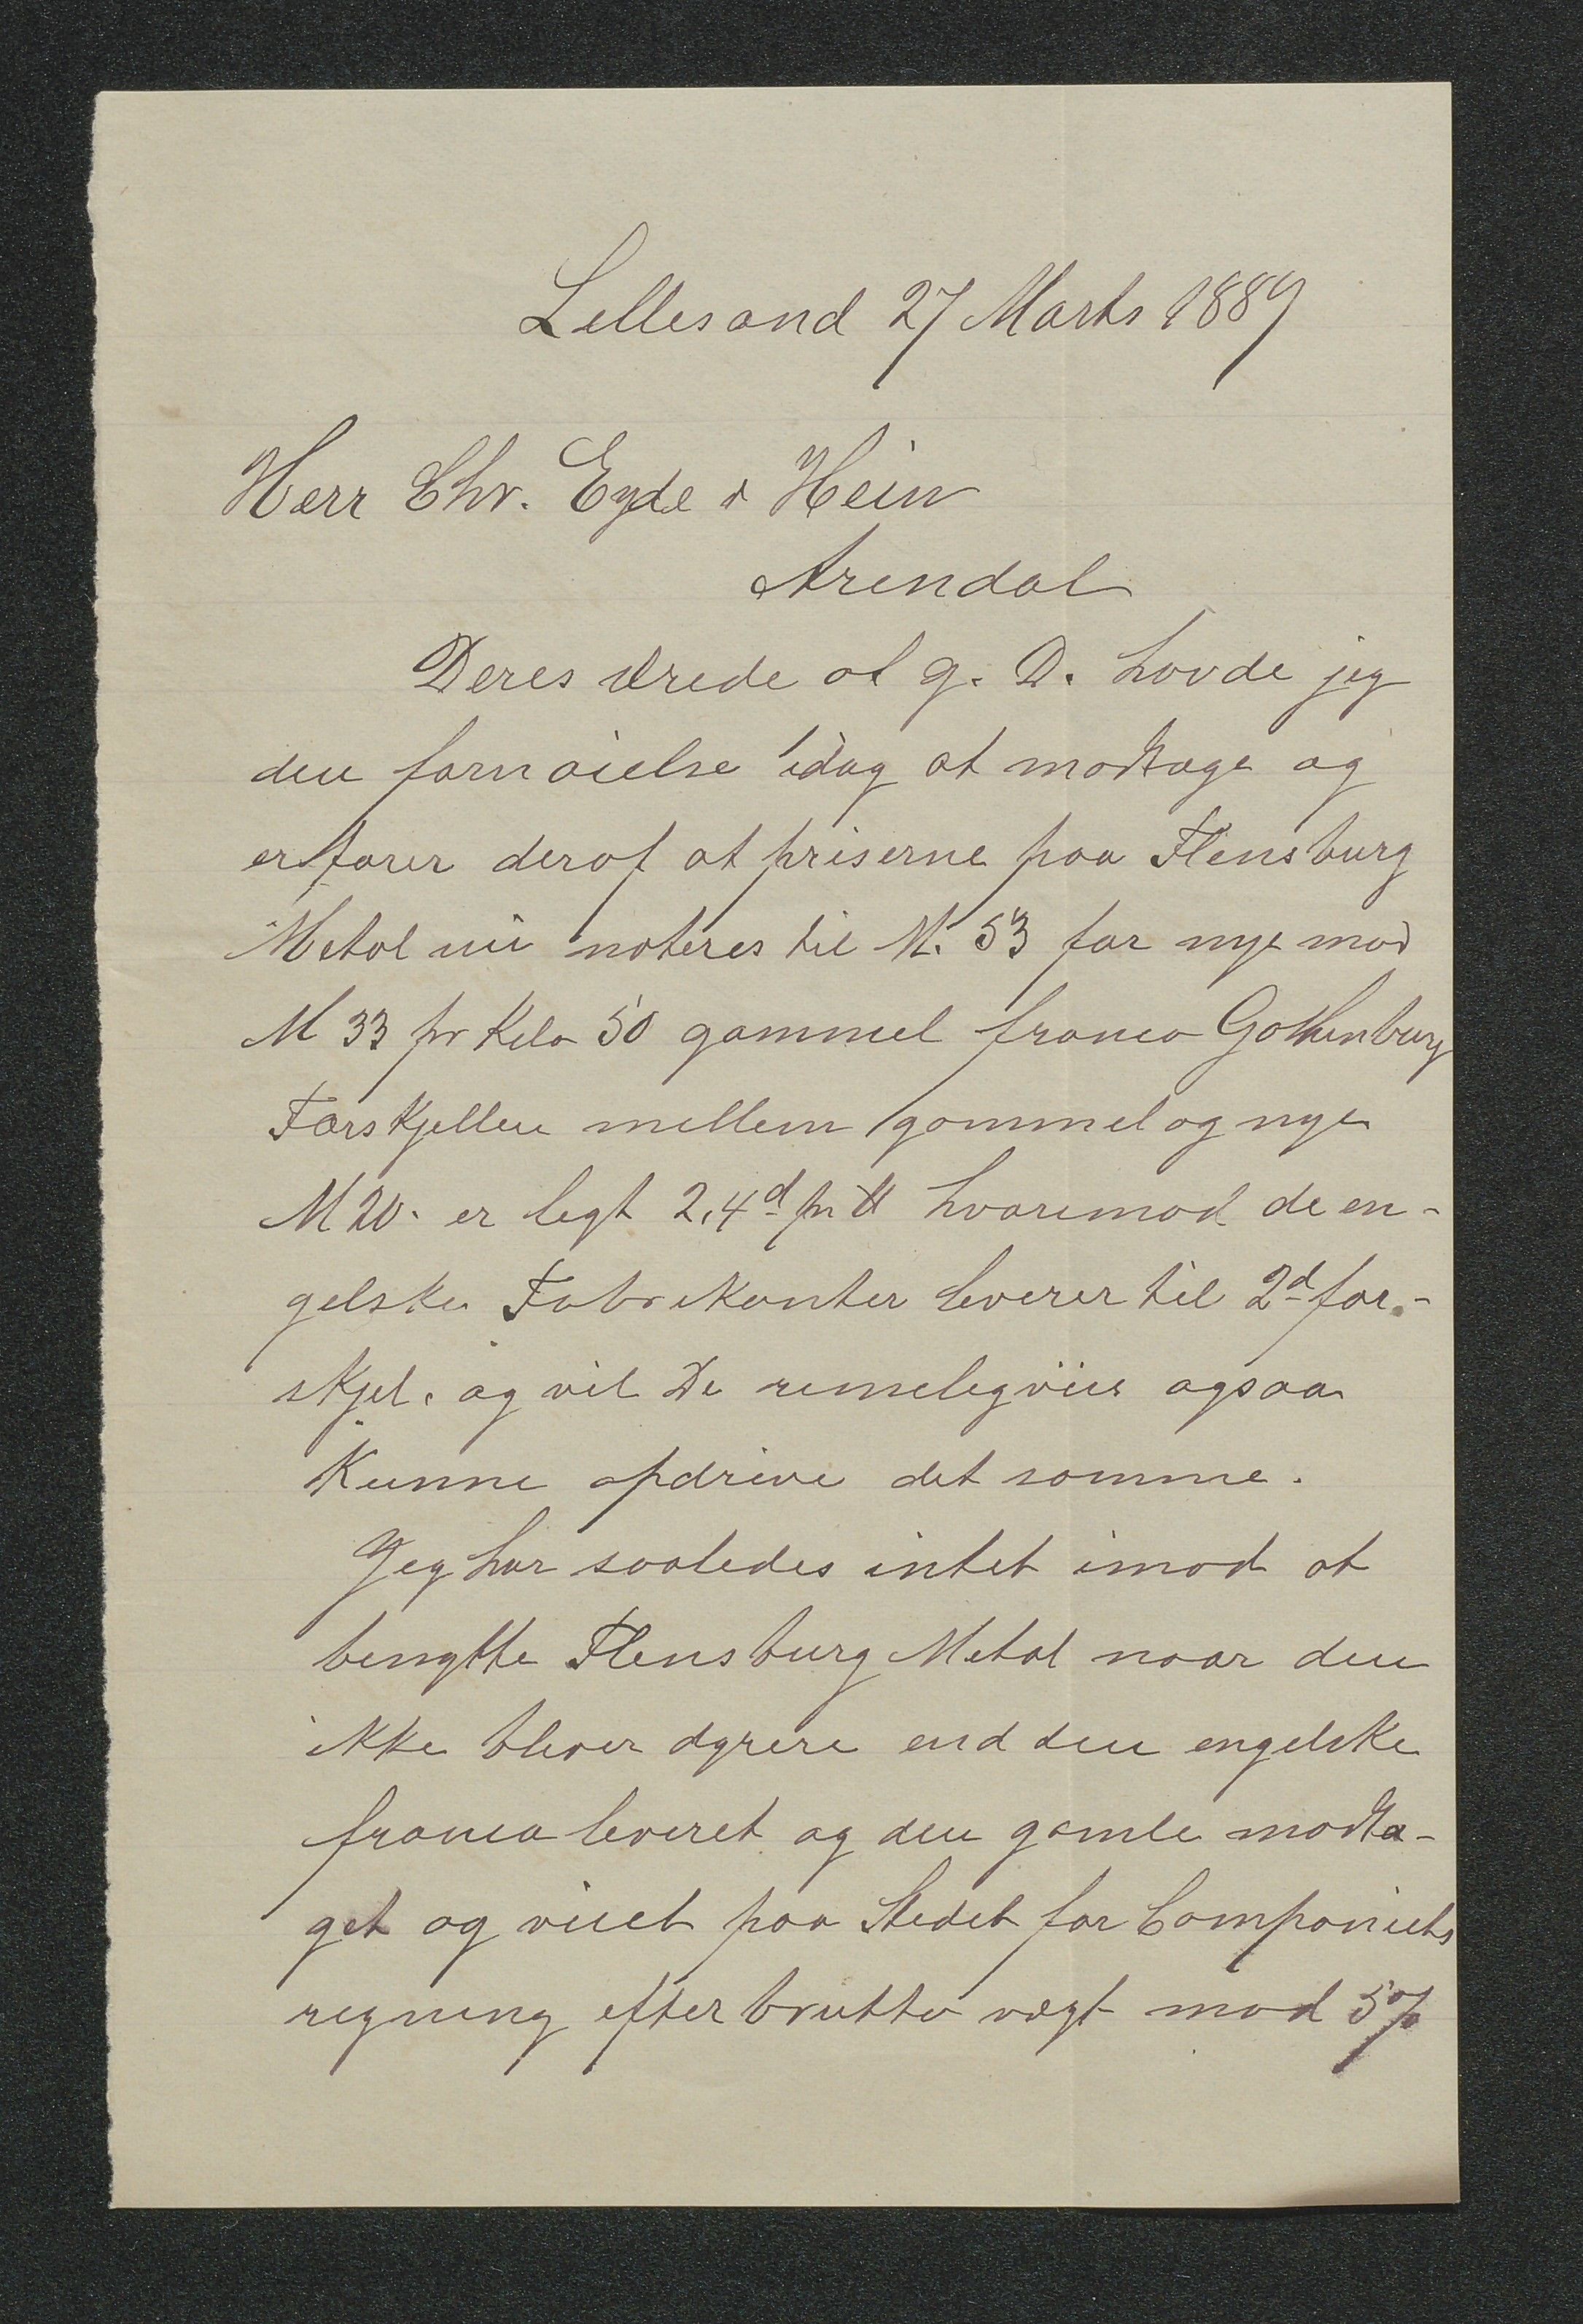 Lillesand 27 Marts 1889
Herr Chr. Eyde & Hein
Arendal
Deres ærede af g. D. havde jeg
den fornøielse idag at modtage og
erfarer deraf at priserne paa Flensburg
Metal nu noteres til M. 53 for nye mod
M 33 pr Kilo 50 gammel franco Gothenburg
Forskjellen mellem gammel og nye
M 20. er ligt 2,4d pr ℔ hvorimod de en-
gelske Fabrikanter leverer til 2d for-
skjel. og vil De rimeligviis ogsaa
kunne opdrive det samme.
Jeg har saaledes intet imod at
benytte Flensburg Metal naar den
ikke bliver dyrere end den engelske
franco leveret og den gamle modta-
get og viiet paa Stedet for Compagniets
regning efter brutto vægt mod 5%